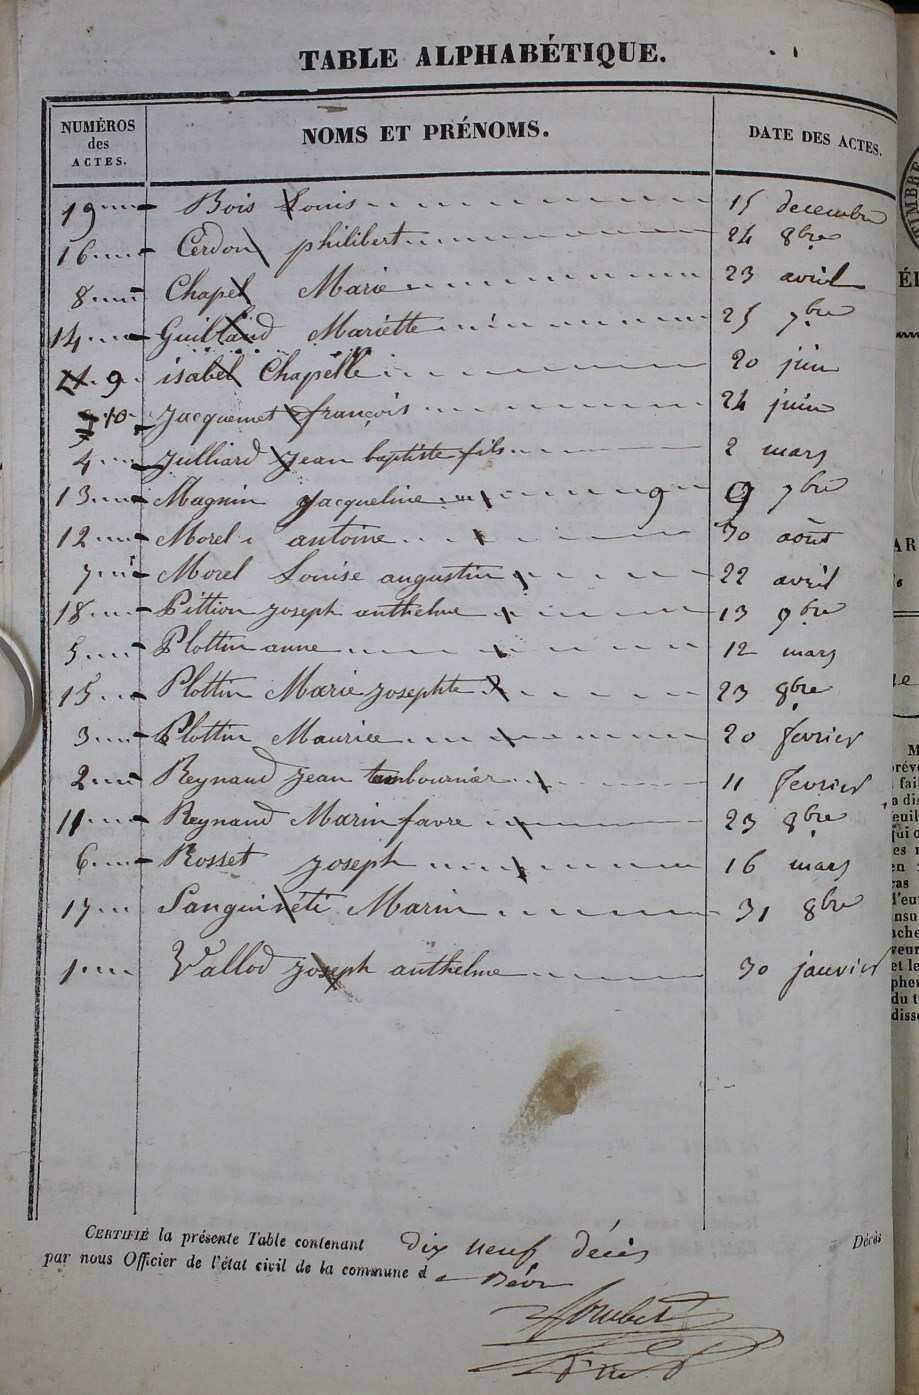 TABLE ALPHABÉTIQUE.
NUMÉROS des ACTES. NOMS ET PRÉNOMS. DATE DES ACTES.
19 Bois Louis 15 decembre
16 Cerdon philibert 24 8bre
8 Chapel Marie 23 avril
14 Guilland Mariette 25 7bre
9 isabel Chapelle 20 juin
10 Jacquemet françois 24 juin
4 Julliard Jean baptiste fils 2 mars
13 Magnin Jacqueline 9 9 7bre
12 Morel antoine 30 août
7 Morel Louise augustin 22 avril
18 Pittion joseph anthelme 13 9bre
5 Plottin anne 12 mars
15 Plottin Marie josephte 23 8bre
3 Plottin Maurice 20 fevrier
2 Reynaud jean tambournier 11 fevrier
11 Reynaud Marin favre 23 8bre
6 Rosset joseph 16 mars
17 Sanguinéti Marin 31 8bre
1 Vallod joseph anthelme 30 janvier
CERTIFIÉ la présente Table contenant dix neuf décès Décès
par nous Officier de l'état civil de la commune d e